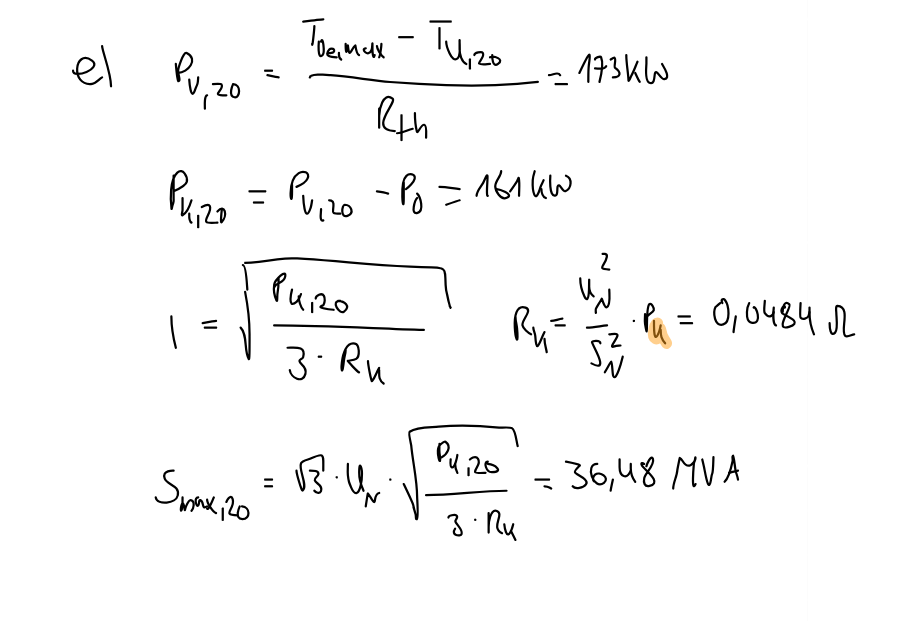 e) P_{V,20} = \frac{T_{Oe,max} - T_{U,20}}{R_{th}} = 173 kW
P_{K,20} = P_{V,20} - P_0 = 161 kW
I = \sqrt{\frac{P_{K,20}}{3 \cdot R_K}} R_K = \frac{U_N^2}{S_N^2} \cdot P_K = 0,0484 Ω
S_{max,20} = \sqrt{3} \cdot U_N \cdot \sqrt{\frac{P_{K,20}}{3 \cdot R_K}} = 36,48 MVA